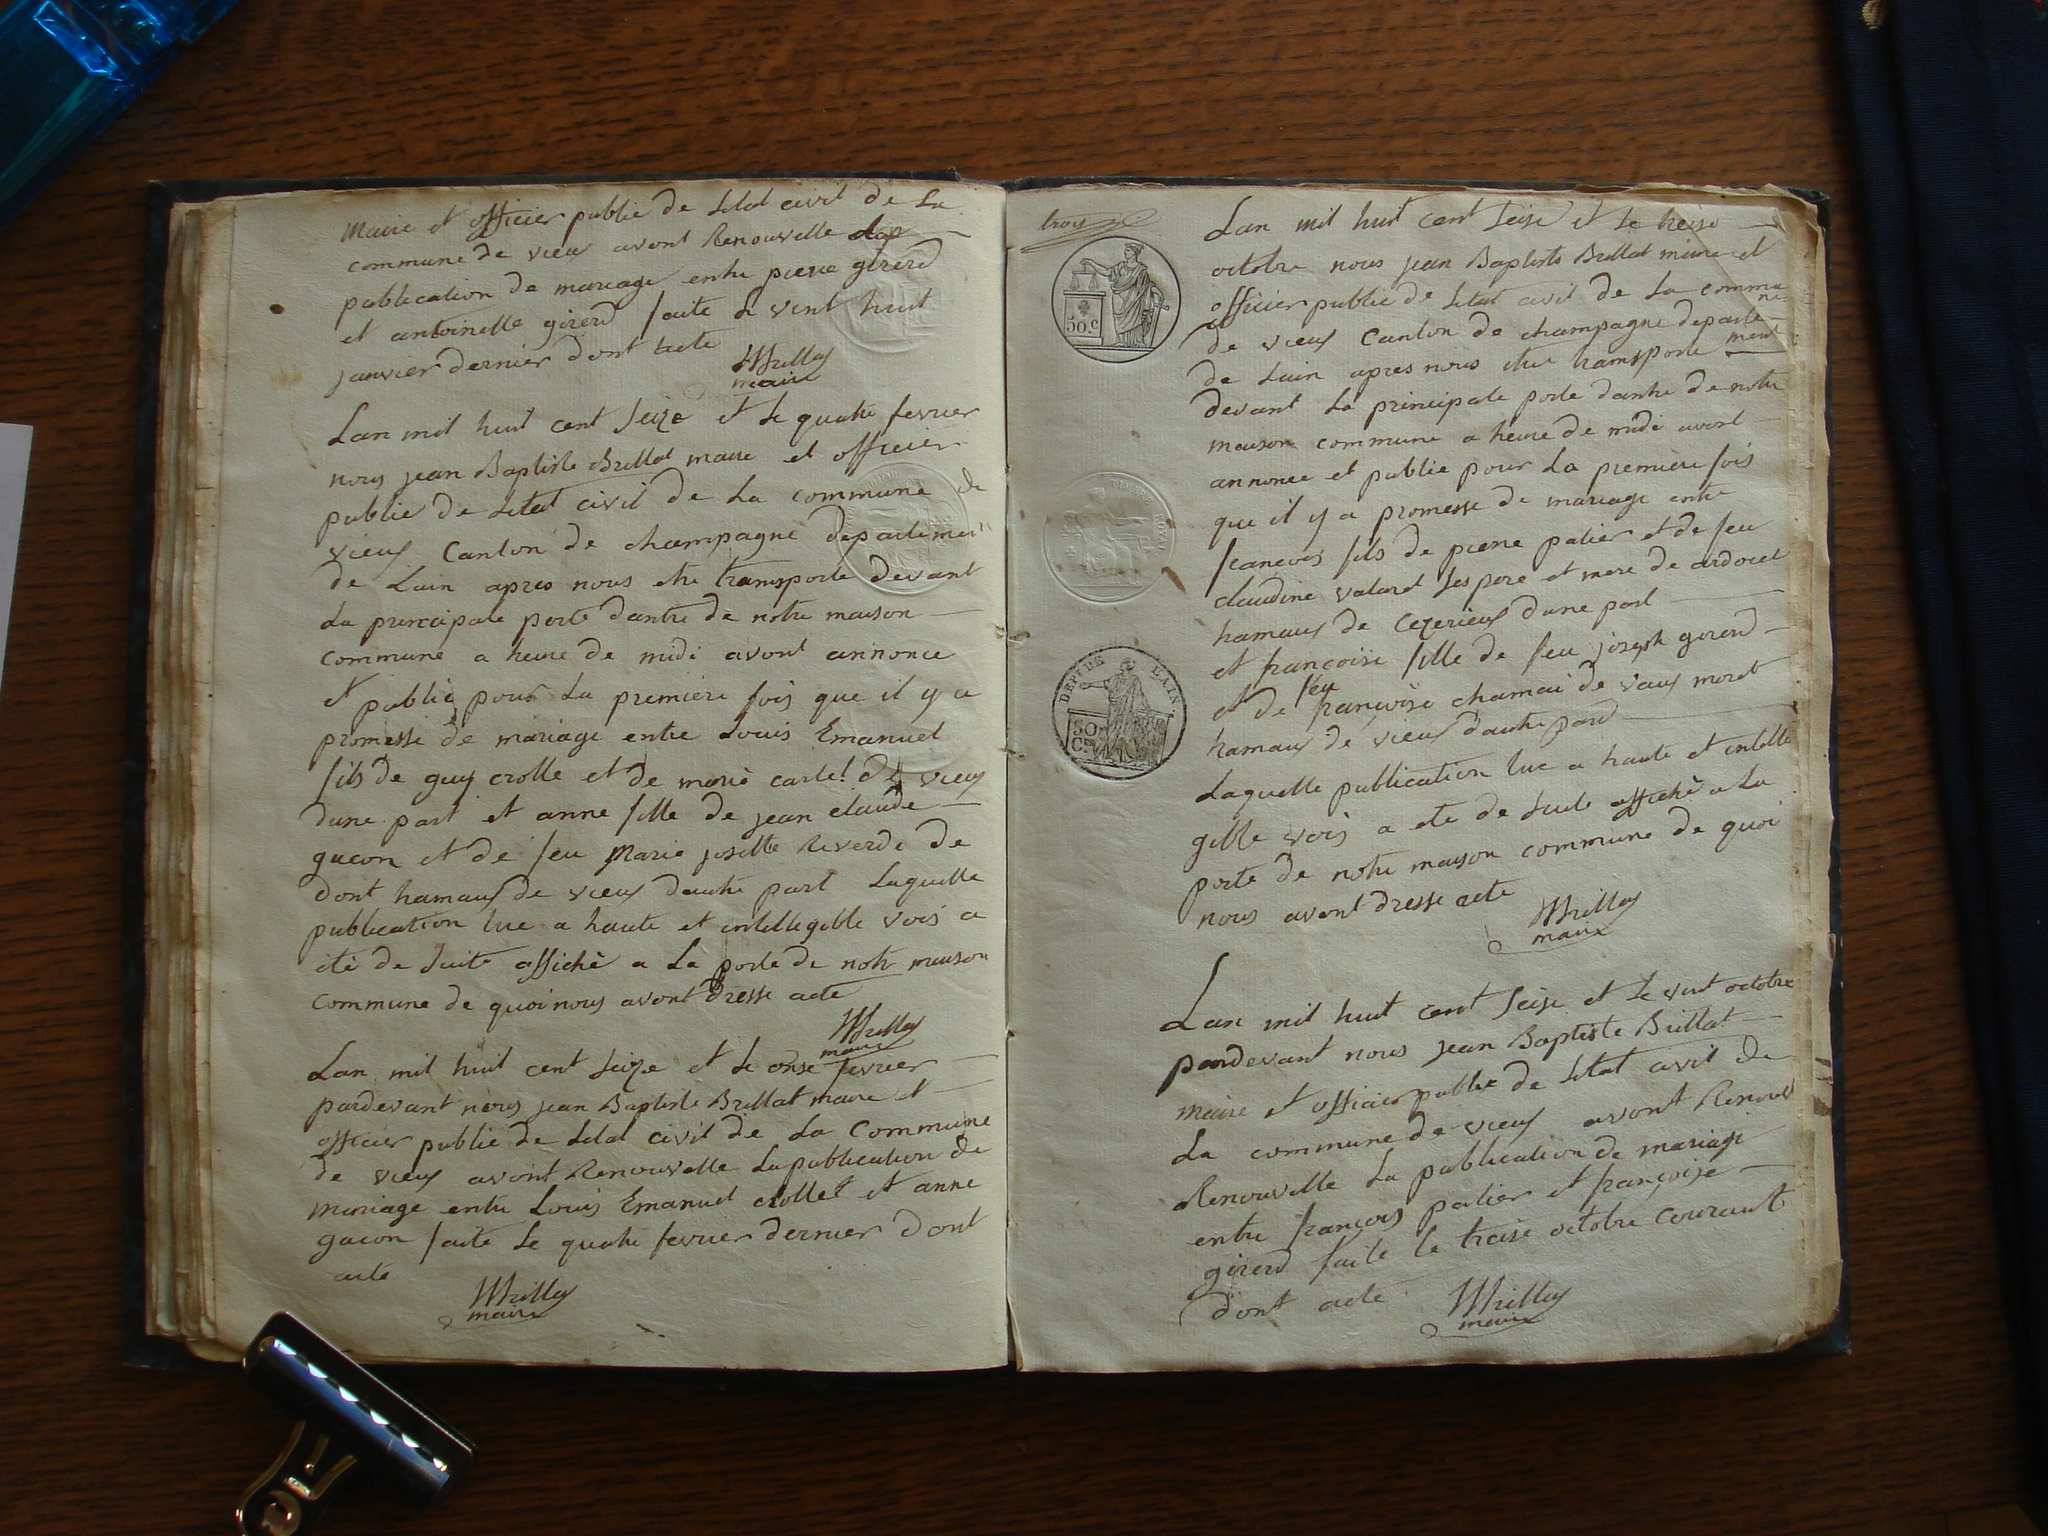 maire et officier public de letat civil de la
commune de vieux avont Renouvelle la
publication de mariage entre pierre girerd
et antoinette girerd faite le vint huit
janvier dernier dont acte
Brillat
maire
Lan mil huit cent seize et le quatre fevrier
nous jean Baptiste Brillat maire et officier
public de letat civil de la commune de
vieux Canton de champagne departement
de Lain apres nous etre transporte devant
La principale porte dantre de notre maison
commune a heure de midi avont annonce
et publie pour La premiere fois que il y a
promesse de mariage entre Louis Emanuel
fils de guy crolle et de marie cartet de vieux
dune part et anne fille de jean claude
gucon et de feu Marie josette Reverdi de
dont hamaux de vieux dautre part Laquelle
publication lue a haute et intellegible vois a
eté de suite affiché a La porte de notre maison
commune de quoi nous avont dresse acte
Brillat
maire
Lan mil huit cent seize et le onse fevrier
pardevant nous jean Baptiste Brillat maire et
officier public de letat civil de La Commune
de vieux avont Renouvelle La publication de
mariage entre Louis Emanuel crollet et anne
gucon faite le quatre fevrier dernier dont
acte
Brillat
maire
trois
50.c
DEPT DE L'AIN.
50
Cs
Lan mil huit cent seise et le treise
octobre nous jean Baptiste Brillat maire et
officier public de letat civil de La commu
ne
de vieux Canton de champagne departe
ment
de Lain apres nous etre transporte
devant La principale porte dantre de notre
maison commune a heure de midi avont
annonce et publie pour La premiere fois
que il y a promesse de mariage entre
francois fils de pierre patier et de feu
claudine valaret ses pere et mere de ardocet
hamaux de Cezerieux dune part
et francoise fille de feu joseph girerd
feu
et de françoise chamai de vaux moret
hamaux de vieux dautre pard
Laquelle publication lue a haute et intelle
gible vois a ete de suite affiché a La
porte de notre maison commune de quoi
nous avont dresse acte
Brillat
maire
Lan mil huit cent seise et le vint octobre
pardevant nous jean Baptiste Brillat
maire et officier public de letat civil de
La commune de vieux avont Renouv
Renouvelle La publication de mariage
entre françois patier et françoise
girerd faite le treise octobre courant
dont acte
Brillat
maire